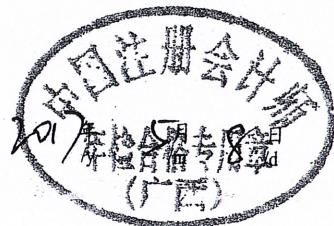 中国注册会计师
2017年 5月 8日
y m d
年检合格专用章
(广西)